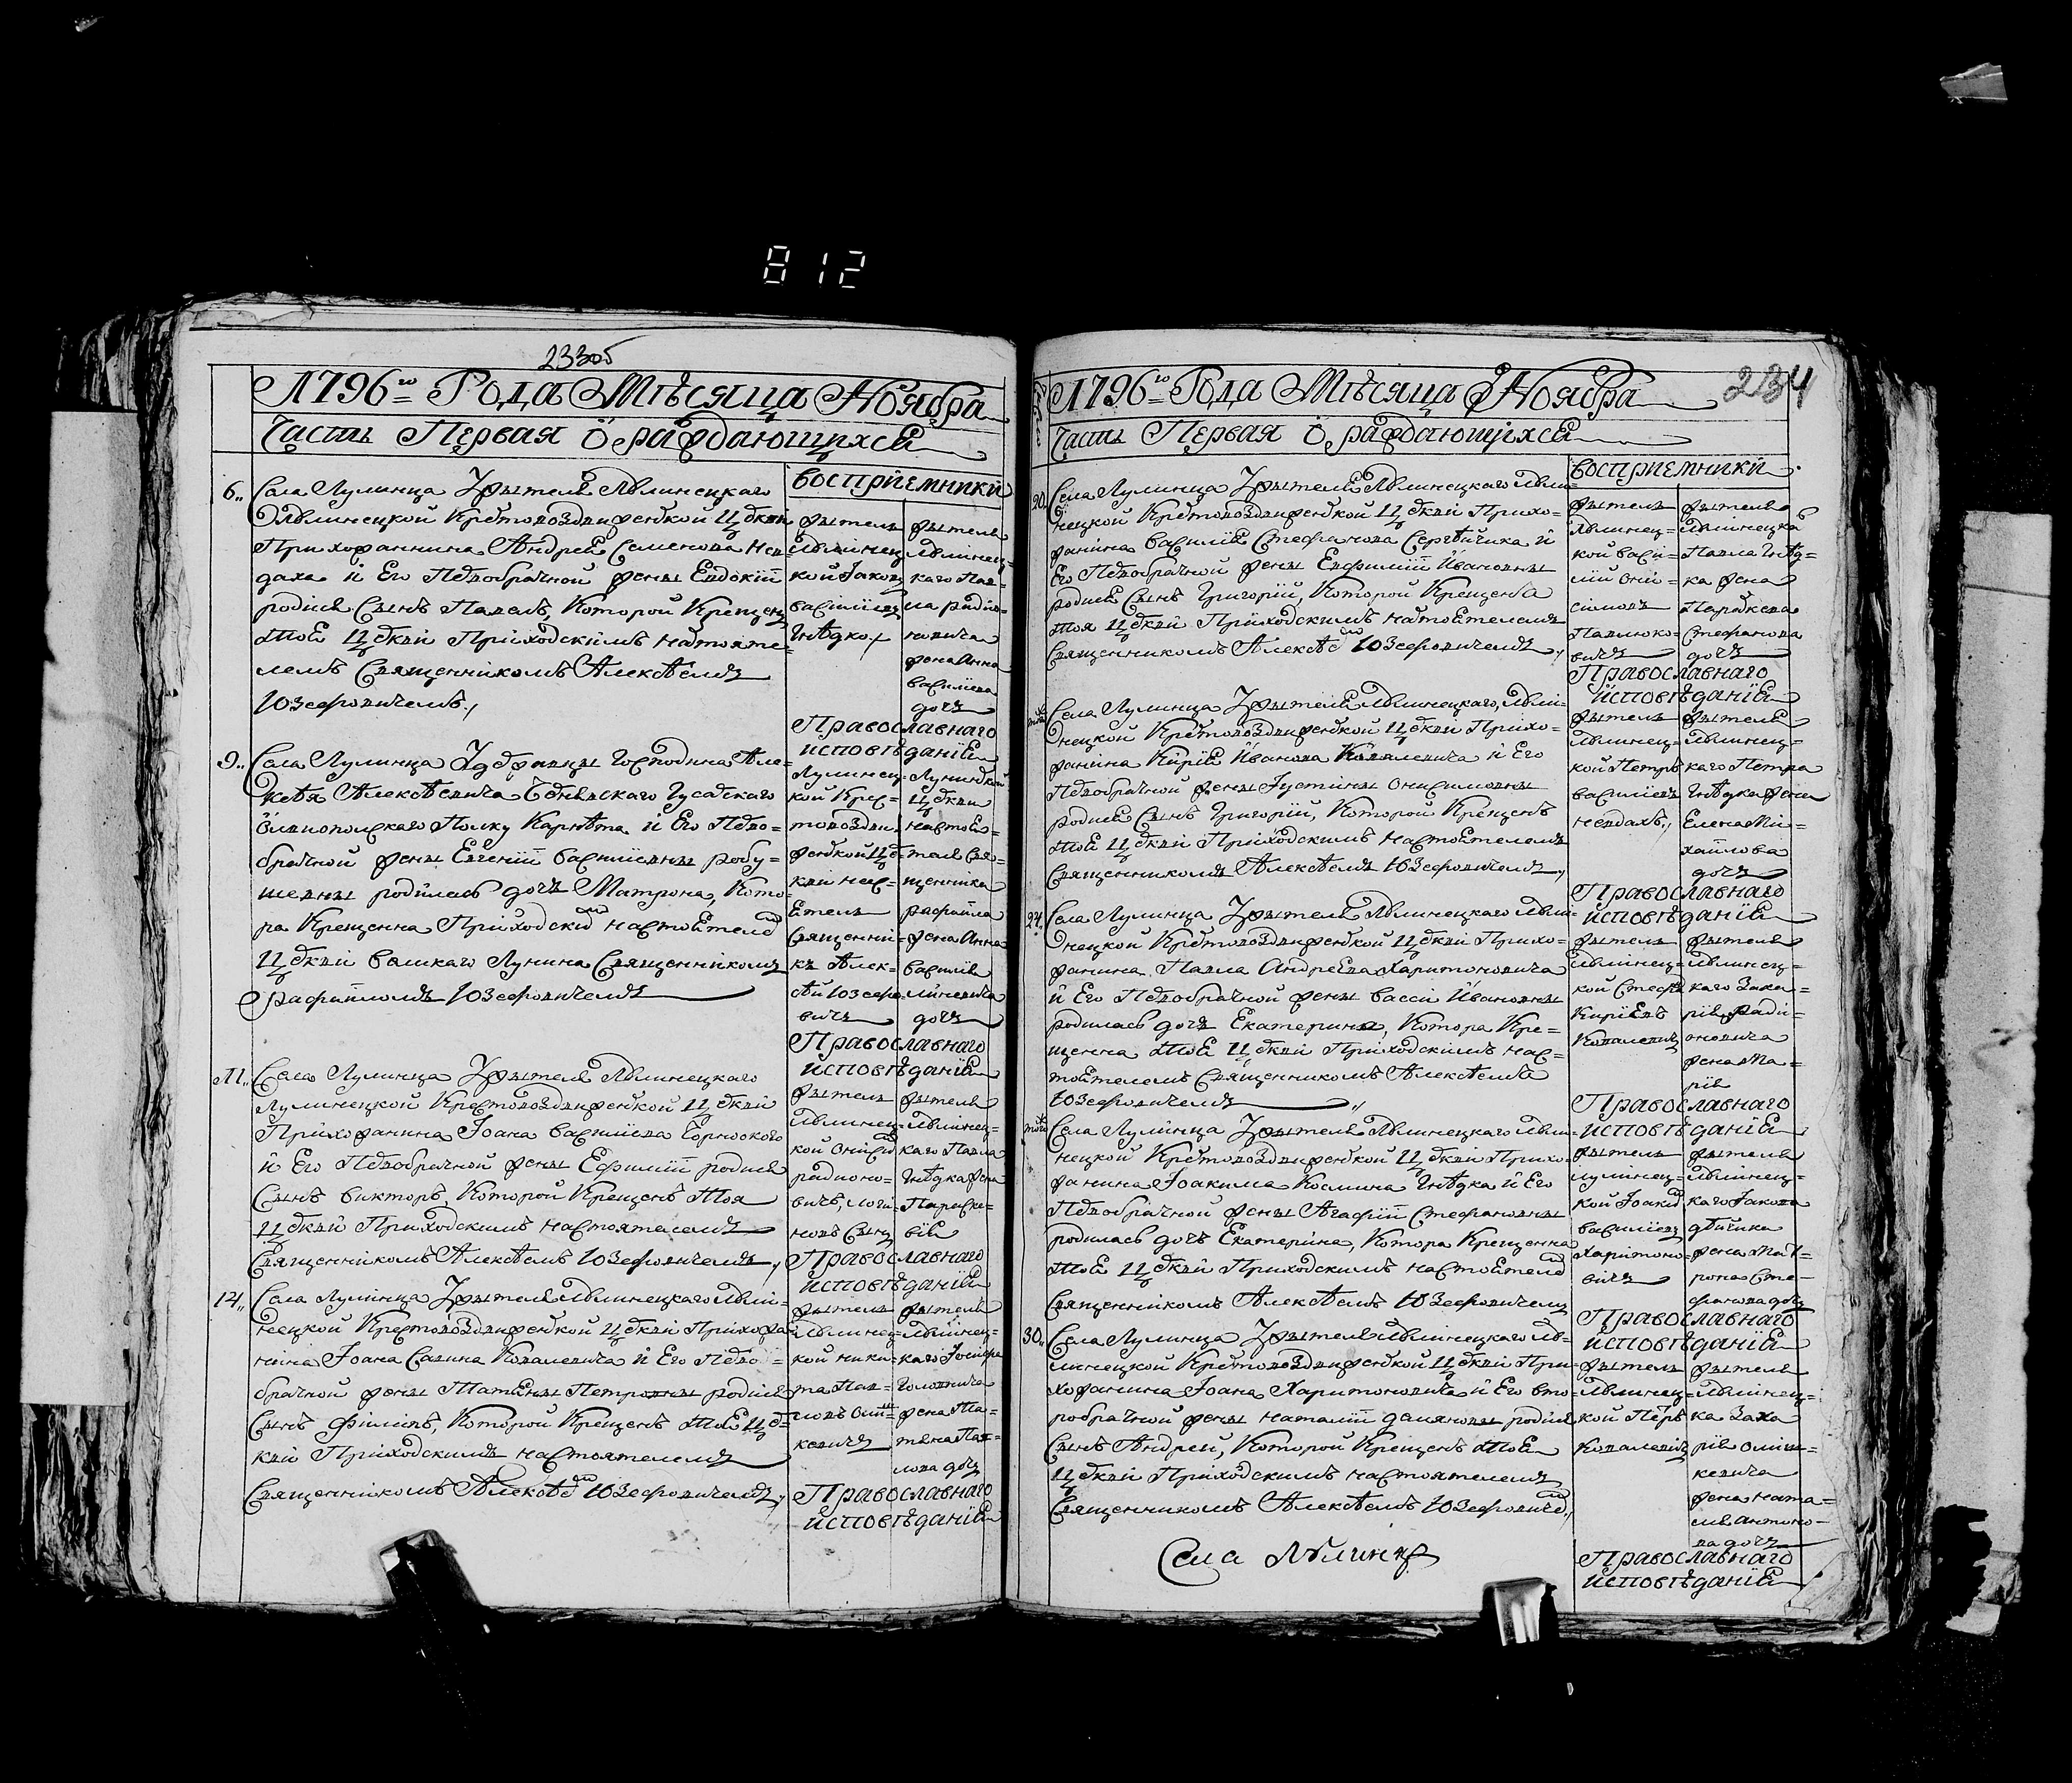 812
233об
1796го Года Мѣсяца Ноября
Часть Первая о раждающихся
воспрїемники
6.
Села Лулинца Жителя Лвлинецкаго
Лвлинецкой Крестовоздвиженской Цркви
Прихожанина Андрея Семенова Нев-
даха и Его Первобрачной жены Евдокїи
родися Сынъ Павелъ, Которой Крещенъ
тоя Цркви Приходскимъ настояте-
лемъ Священникомъ Алексѣемъ
Юзефовичемъ
житель
Лвлинец-
кой Іаковъ
василїевъ
Гнѣдко
жителя
Лвлинец-
каго Пав-
ла Радио-
новича
жена Анна
василїева
дочь
Православнаго
исповѣданїя
9.
Села Лулинца
господина Але-
ксѣя Алексѣевича
гусарскаго
Полку Карнета и Его Перво-
брачной жены Евгенїи василїевны
родилась дочь Матрона, Кото-
ра Крещенна Приходским настоятелем
Цркви великаго Лунина Священникомъ
рафаиломъ Юзефовичемъ
Лулинец-
кой Крес-
товоздви-
женской Цр-
кви нас-
тоятель
Священни-
къ Алек-
сѣй Юзефо-
вичъ
Цркви
настоя-
теля Свя-
щенника
рафаила
жена Анна
василїя
дочь
Православнаго
исповѣданїя
11.
Села Лулинца Жителя Лвлинецкаго
Лулинецкой Крестовоздвиженской Цркви
Прихожанина Іоана василїева Чорноокого
и Его Первобрачной жены Ефимїи родися
Сынъ викторъ, Которой Крещенъ тоя
Цркви Приходскимъ настоятелемъ
Священникомъ Алексѣемъ Юзефовичемъ
житель
Лвлинец-
кой
радионо-
вичъ, логи-
новъ Сынъ
жителя
Лвлинец-
каго Павла
Гнѣдка жена
Параске-
вія
Православнаго
исповѣданїя
14.
Села Лулинца Жителя Лвлинецкаго Лвли-
нецкой Крестовоздвиженской Цркви Прихожа-
нина Іоана Савина Ковалевича и Его Перво-
брачной жены Татїяны Петровны родися
Сынъ Филипъ, Которой Крещенъ тоя Цр-
кви Приходскимъ настоятелемъ
Священникомъ Алексѣем Юзефовичемъ
житель
Лвлинец-
кой ники-
та Пав-
ловъ
кевичъ
жителя
Лвлинец-
каго Іосифа
Головнича
жена Та-
тяна Пав-
лова дочь
Православнаго
исповѣданїя
234
1796го Года Мѣсяца Ноября
Часть Первая о раждающихся
воспрїемники
20.
Села Лулинца Жителя Лвлинецкаго Лвли-
нецкой Крестовоздвиженской Цркви Прихо-
жанина василїя Стефанова Сергѣйчика и
Его Первобрачной жены Евфимїи Ивановны
родися Сынъ Григорїй, Которой Крещенъ
тоя Цркви Приходскимъ настоятелемъ
Священникомъ Алексѣем Юзефовичемъ
житель
Лвлинец-
кой васи-
лїй Они-
симовъ
Павлюко-
вичъ
жителя
Лвлинецка
Павла Гнѣд-
ка жена
Параксева
Стефанова
дочь
Православнаго
исповѣданїя
Села Лулинца Жителя Лвлинецкаго, Лвли-
нецкой Крестовоздвиженской Цркви Прихо-
жанина Кирїя Иванова Ковалевича и Его
Первобрачной жены Іустины Онисимовны
родися Сынъ Григорїй, Которой Крещенъ
тоя Цркви Приходскимъ настоятелемъ
Священникомъ Алексѣемъ Юзефовичемъ
житель
Лвлинец-
кой Петръ
василїевъ
невдахъ
жителя
Лвлинец-
каго Петра
Гнѣдка жена
Елена Ми-
хаилова
дочь
Православнаго
исповѣданїя
Села Лулинца Жителя Лвлинецкаго Лвли-
нецкой Крестовоздвиженской Цркви Прихо-
жанина Павла Андреева Харитоновича
и Его Первобрачной жены вассы Ивановны
родилась дочь Екатерина, Котора Кре-
щенна тоя Цркви Приходскимъ нас-
тоятелемъ Священникомъ Алексѣемъ
Юзефовичемъ
житель
Лвлинец-
кой Стефанъ
Кирїевъ
Ковалевичъ
жителя
Лвлинец-
каго Заха-
рїя Ради-
оновича
жена Ма-
рїя
Православнаго
исповѣданїя
Села Лулинца Жителя Лвлинецкаго Лвли-
нецкой Крестовоздвиженской Цркви Прихо-
жанина Іоакима Космина Гнѣдка и Его
Первобрачной жены Агафїи Стефановны
родилась дочь Екатерина, Котора Крещенна
тоя Цркви Приходскимъ настоятелем
Священникомъ Алексѣемъ Юзефовичемъ
житель
лулинец-
кой Іоаким
василїевъ
Харитоно-
вичъ
жителя
Лвлинец-
каго Іакова
дѣйчика
жена Мат-
рона Сте-
фанова дочь
Православнаго
исповѣданїя
30.
Села Лулинца Жителя Лвлинецкаго Лв-
линецкой Крестовоздвиженской Цркви При-
хожанина Іоана Харитоновича и Его вто-
робрачной жены наталїи дамяновы родися
Сынъ Андрей, Которой Крещенъ тоя
Цркви Приходскимъ настоятелемъ
Священникомъ Алексѣемъ Юзефовиче
житель
Лвлинец-
кой Петръ
Ковалевичъ
жителя
Лвлинец-
ка Заха
рїя Олиш-
кевича
жена ната-
лїя антоно-
ва дочь
Православнаго
исповѣданїя